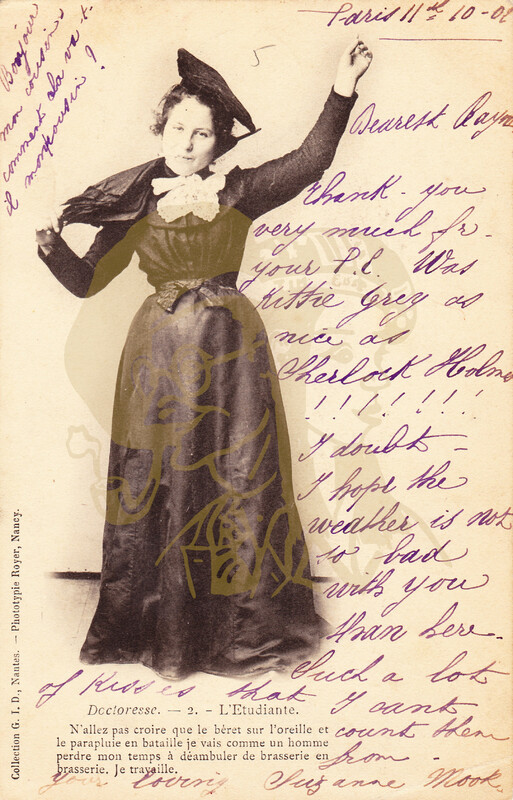 Paris 11 10-01
5
Bonjour
mon cousin
comment cela va-t-
il mon cousin ?
Dearest
Thank-you
very much for
your P.C. Was
Kittie Grey as
nice as
Sherlock Holmes
! ! ! ! ! ! !
I doubt -
I hope the
weather is not
so bad
with you
than here -
Such a lot
of kisses that
I cant
count them
from -
your loving Suzanne Mook
Doctoresse. — 2. - L'Etudiante.
N'allez pas croire que le béret sur l'oreille et
le parapluie en bataille je vais comme un homme
perdre mon temps à déambuler de brasserie en
brasserie. Je travaille.
Collection G. I. D., Nantes. — Phototypie Royer, Nancy.